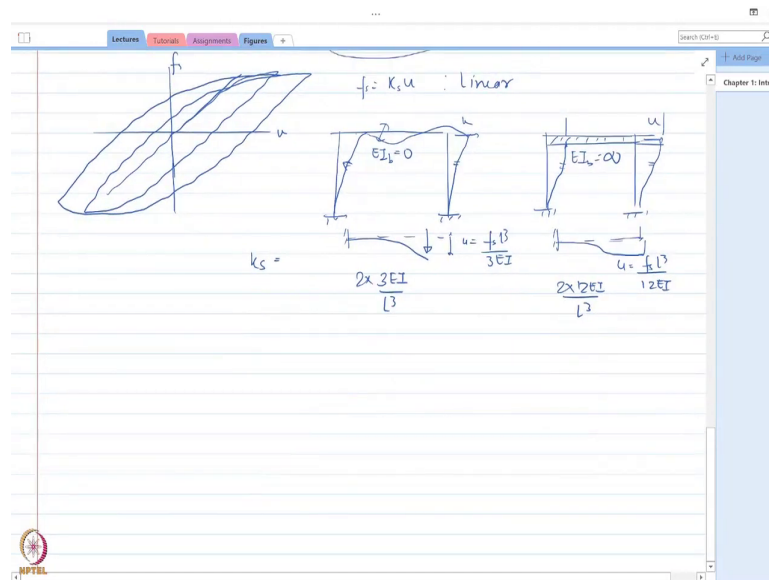 ...
Lectures Tutorials Assignments Figures +
Search (Ctrl+E)
+ Add Page
Chapter 1: Intr
fs
u
fs = Ks u : Linear
u
EI_b = 0
u
EI_b = ∞
u = fs l³ / 3EI
u = fs l³ / 12EI
ks =
2 × 3EI / L³
2 × 12EI / L³
NPTEL